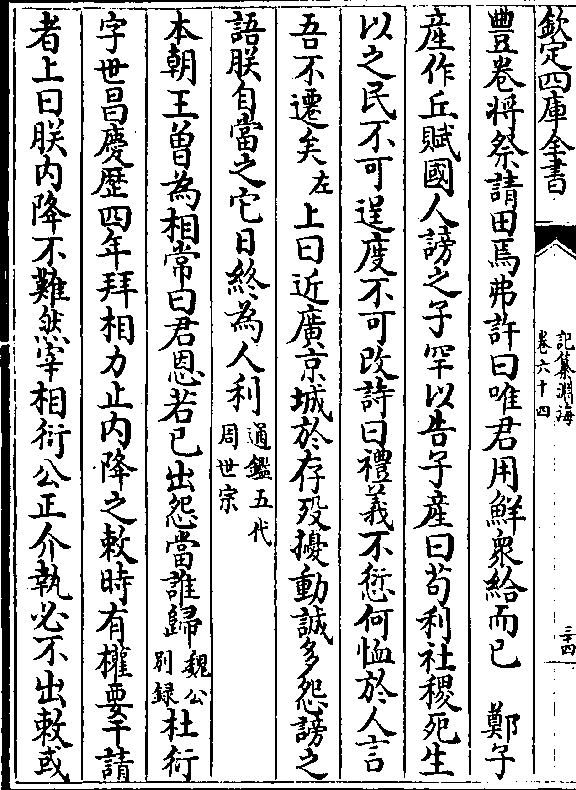 欽定四庫全書
記纂淵海
卷六十四
三四
豐卷將祭請田焉弗許曰唯君用鮮衆給而已　鄭子
産作丘賦國人謗之子罕以告子産曰苟利社稷死生
以之民不可逞度不可改詩曰禮義不愆何恤於人言
吾不遷矣左上曰近廣京城於存歿擾動誠多怨謗之
語朕自當之它日終為人利通鑑五代周世宗
本朝王曾為相常曰君恩若已出怨當誰歸魏公别録杜衍
字世昌慶歴四年拜相力止内降之敕時有權要干請
者上曰朕内降不難然宰相衍公正介執必不出敕或